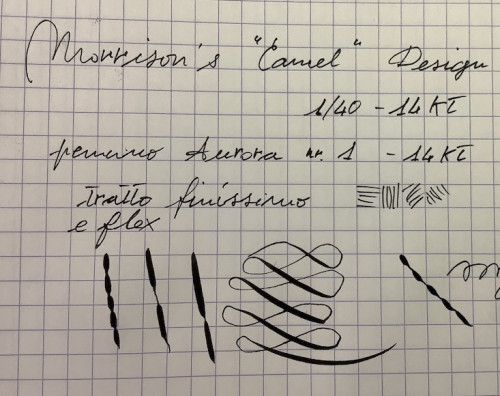 Morrison's "Camel" Design
1/40 - 14 KT
pennino Aurora nr. 1 - 14 KT
tratto finissimo
e flex